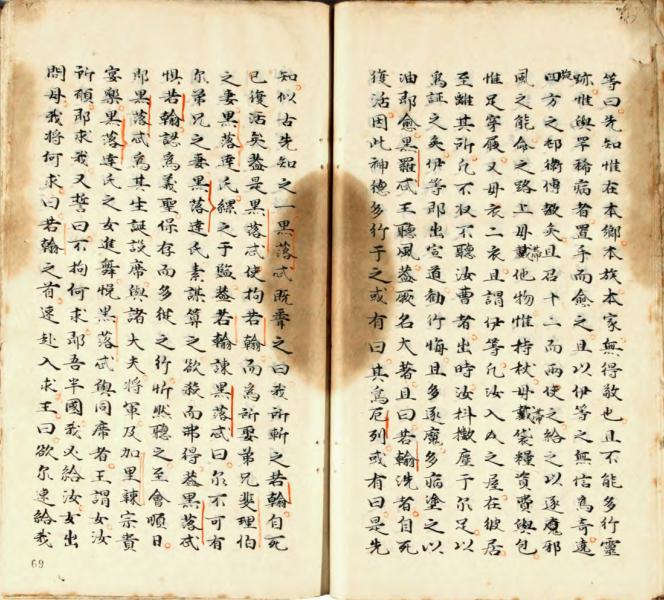 等曰先知惟在本鄉本族本家無得敬也且不能多行靈
跡惟與罕稀病者置手而愈之且以伊等之無信為奇遶
四方之邨衛傅教矣且召十二而兩使之給之以逐魔邪
風之能命之路上毋戴他物惟持杖毋戴袋糧資費與包
惟足穿屐又毋衣二衣且謂伊等凡汝入人之戹在彼居
至離其所凡不収不聽汝曹者出時汝抖擻塵于尔足以
為証之矣伊等即出宣道勸行悔且多逐魔多病塗之以
油即愈黑羅忒王聽風盖厥名大著且曰若翰洗者自死
復活因此神德多行于之或有曰其為厄列或有曰是先
知似古先知之一黑落忒既聞之曰我所斬之若翰自死
已復活矣盖是黑落忒使拘若翰而為所娶弟兄斐理伯
之妻黑落達氏縲之于監盖若翰諫黑落忒曰尔不可有
尔弟兄之妻黑落達氏素謀算之欲殺而弗得盖黑落忒
惧若翰認為義聖保存而多從之行忻然聽之至會順日
即黑落忒為其生誕設席與諸大夫將軍及加里辣宗貴
宴樂黑落達氏之女進舞悅黑落忒與同席者王謂女汝
所願即求我又誓曰不拘何求即吾半國我必給汝女出
問母我將何求曰若翰之首速赴入求王曰欲尔速給我
69